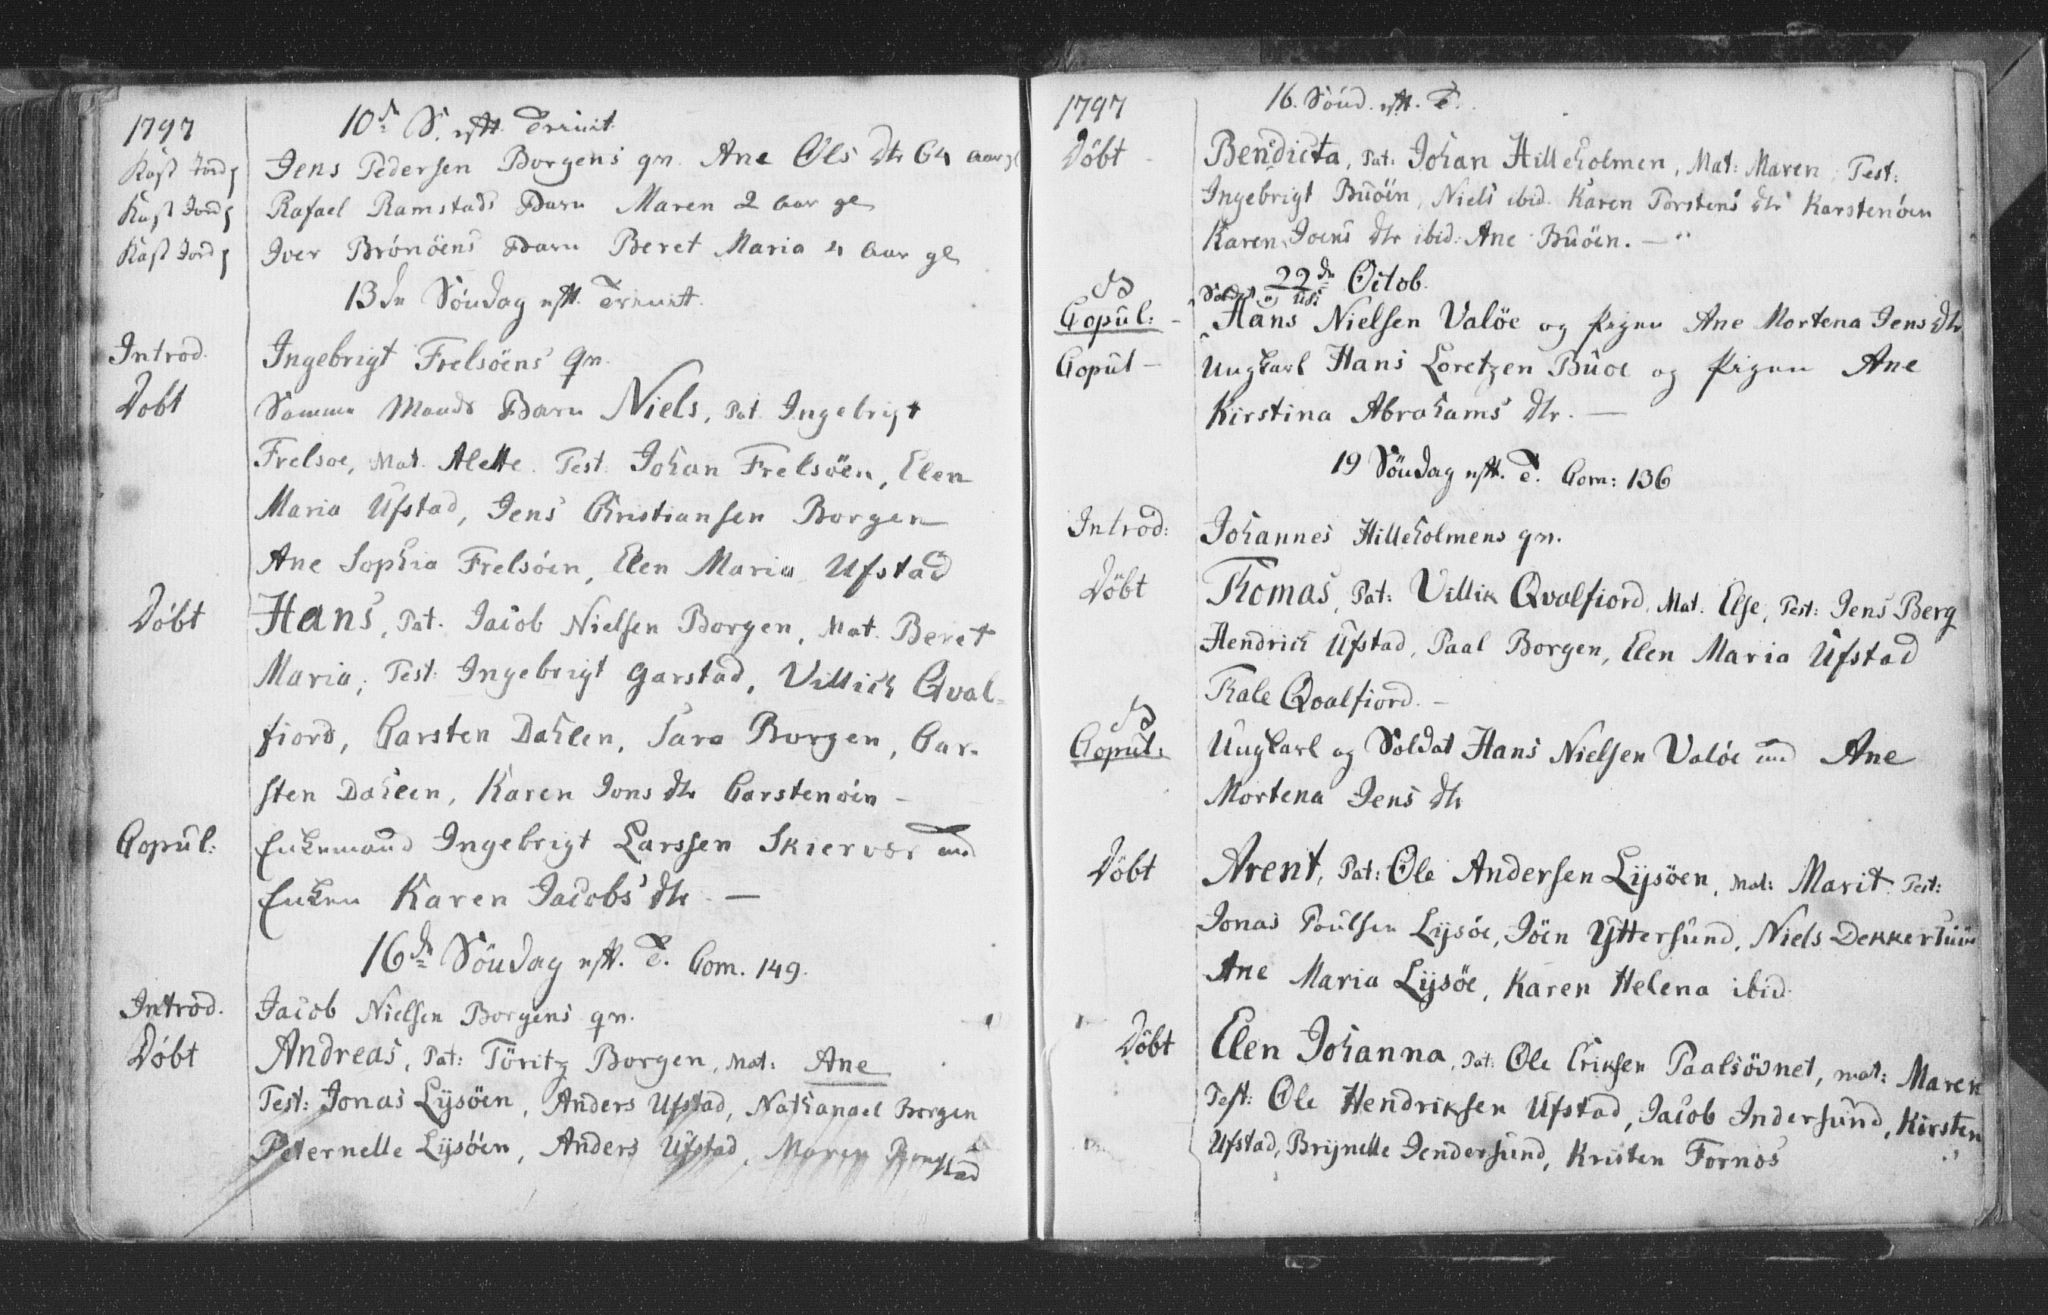 1797
10de S. eft. Trinit.
Kast Jord Jens Pedersen Borgens qn. Ane Ols dtr 64 aar gl
Kast Jord Rafael Ramstads Barn Maren 2 aar gl
Kast Jord Iver Brönöens Barn Beret Maria 4 aar gl
13de Söndag eft. Trinit.
Introd. Ingebrigt Frelsöens qn.
Döbt Samme Mands Barn Niels, Pat. Ingebrigt
Frelsoe, Mat. Alette. Test. Johan Frelsöen, Elen
Maria Ufstad, Jens Christiansen Borgen
Ane Sophia Frelsöen, Elen Maria Ufstad
Döbt Hans, Pat. Jacob Nielsen Borgen, Mat. Beret
Maria, Test: Ingebrigt Garstad, Villich Qval-
fiord, Carsten Dahlen, Sara Borgen, Car-
sten Dahlen, Karen Jons dtr Carstenöen -
Copul: Enkemand Ingebrigt Larssen Skiervær med
Enken Karen Jacobs dtr. —
16de Söndag eft. T. Com. 149.
Introd. Jacob Nielsen Borgens qn.
Döbt Andreas, Pat: Töritz Borgen, Mat: Ane
Test: Jonas Lysöen, Anders Ufstad, Nathanael Borgen
Peternelle Lysöen, Anders Ufstad, Maren Ramstad
1797
16. Sönd. eft. T.
Döbt - Bendicta, Pat: Johan Hilleholmen, Mat: Maren, Test:
Ingebrigt Buöen, Niels ibid. Karen Torstens dtr Karstenöen
Karen Joens dtr ibid: Ane Buöen. —
22de Octob.
Copul: - Hans Nielsen Valöe og Pigen Ane Mortena Jens dtr
Copul — Ungkarl Hans Loretzen Buoe og Pigen Ane
Kirstina Abrahams dtr. —
19 Söndag eft. T. Com: 136
Introd: Johannes Hilleholmens qn.
Döbt Thomas, Pat: Villik Qvalfiord, Mat. Else, Test: Jens Berg
Hendrich Ufstad, Paal Borgen, Elen Maria Ufstad
Thale Qvalfiord. —
Copul: Ungkarl og Soldat Hans Nielsen Valöe med Ane
Mortena Jens dtr
Döbt Arent, Pat: Ole Andersen Lysöen, Mat: Marit. Test:
Jonas Poulsen Lysöe, Jöen Yttersund, Niels Dekkertuun
Ane Maria Lysöe, Karen Helena ibid.
Döbt Elen Johanna, Pat: Ole Eriksen Paalsövnet, mat: Maren
Test: Ole Hendriksen Ufstad, Jacob Indersund, Kirsten
Ufstad, Brynelle Jendersund, Kristen Fornos